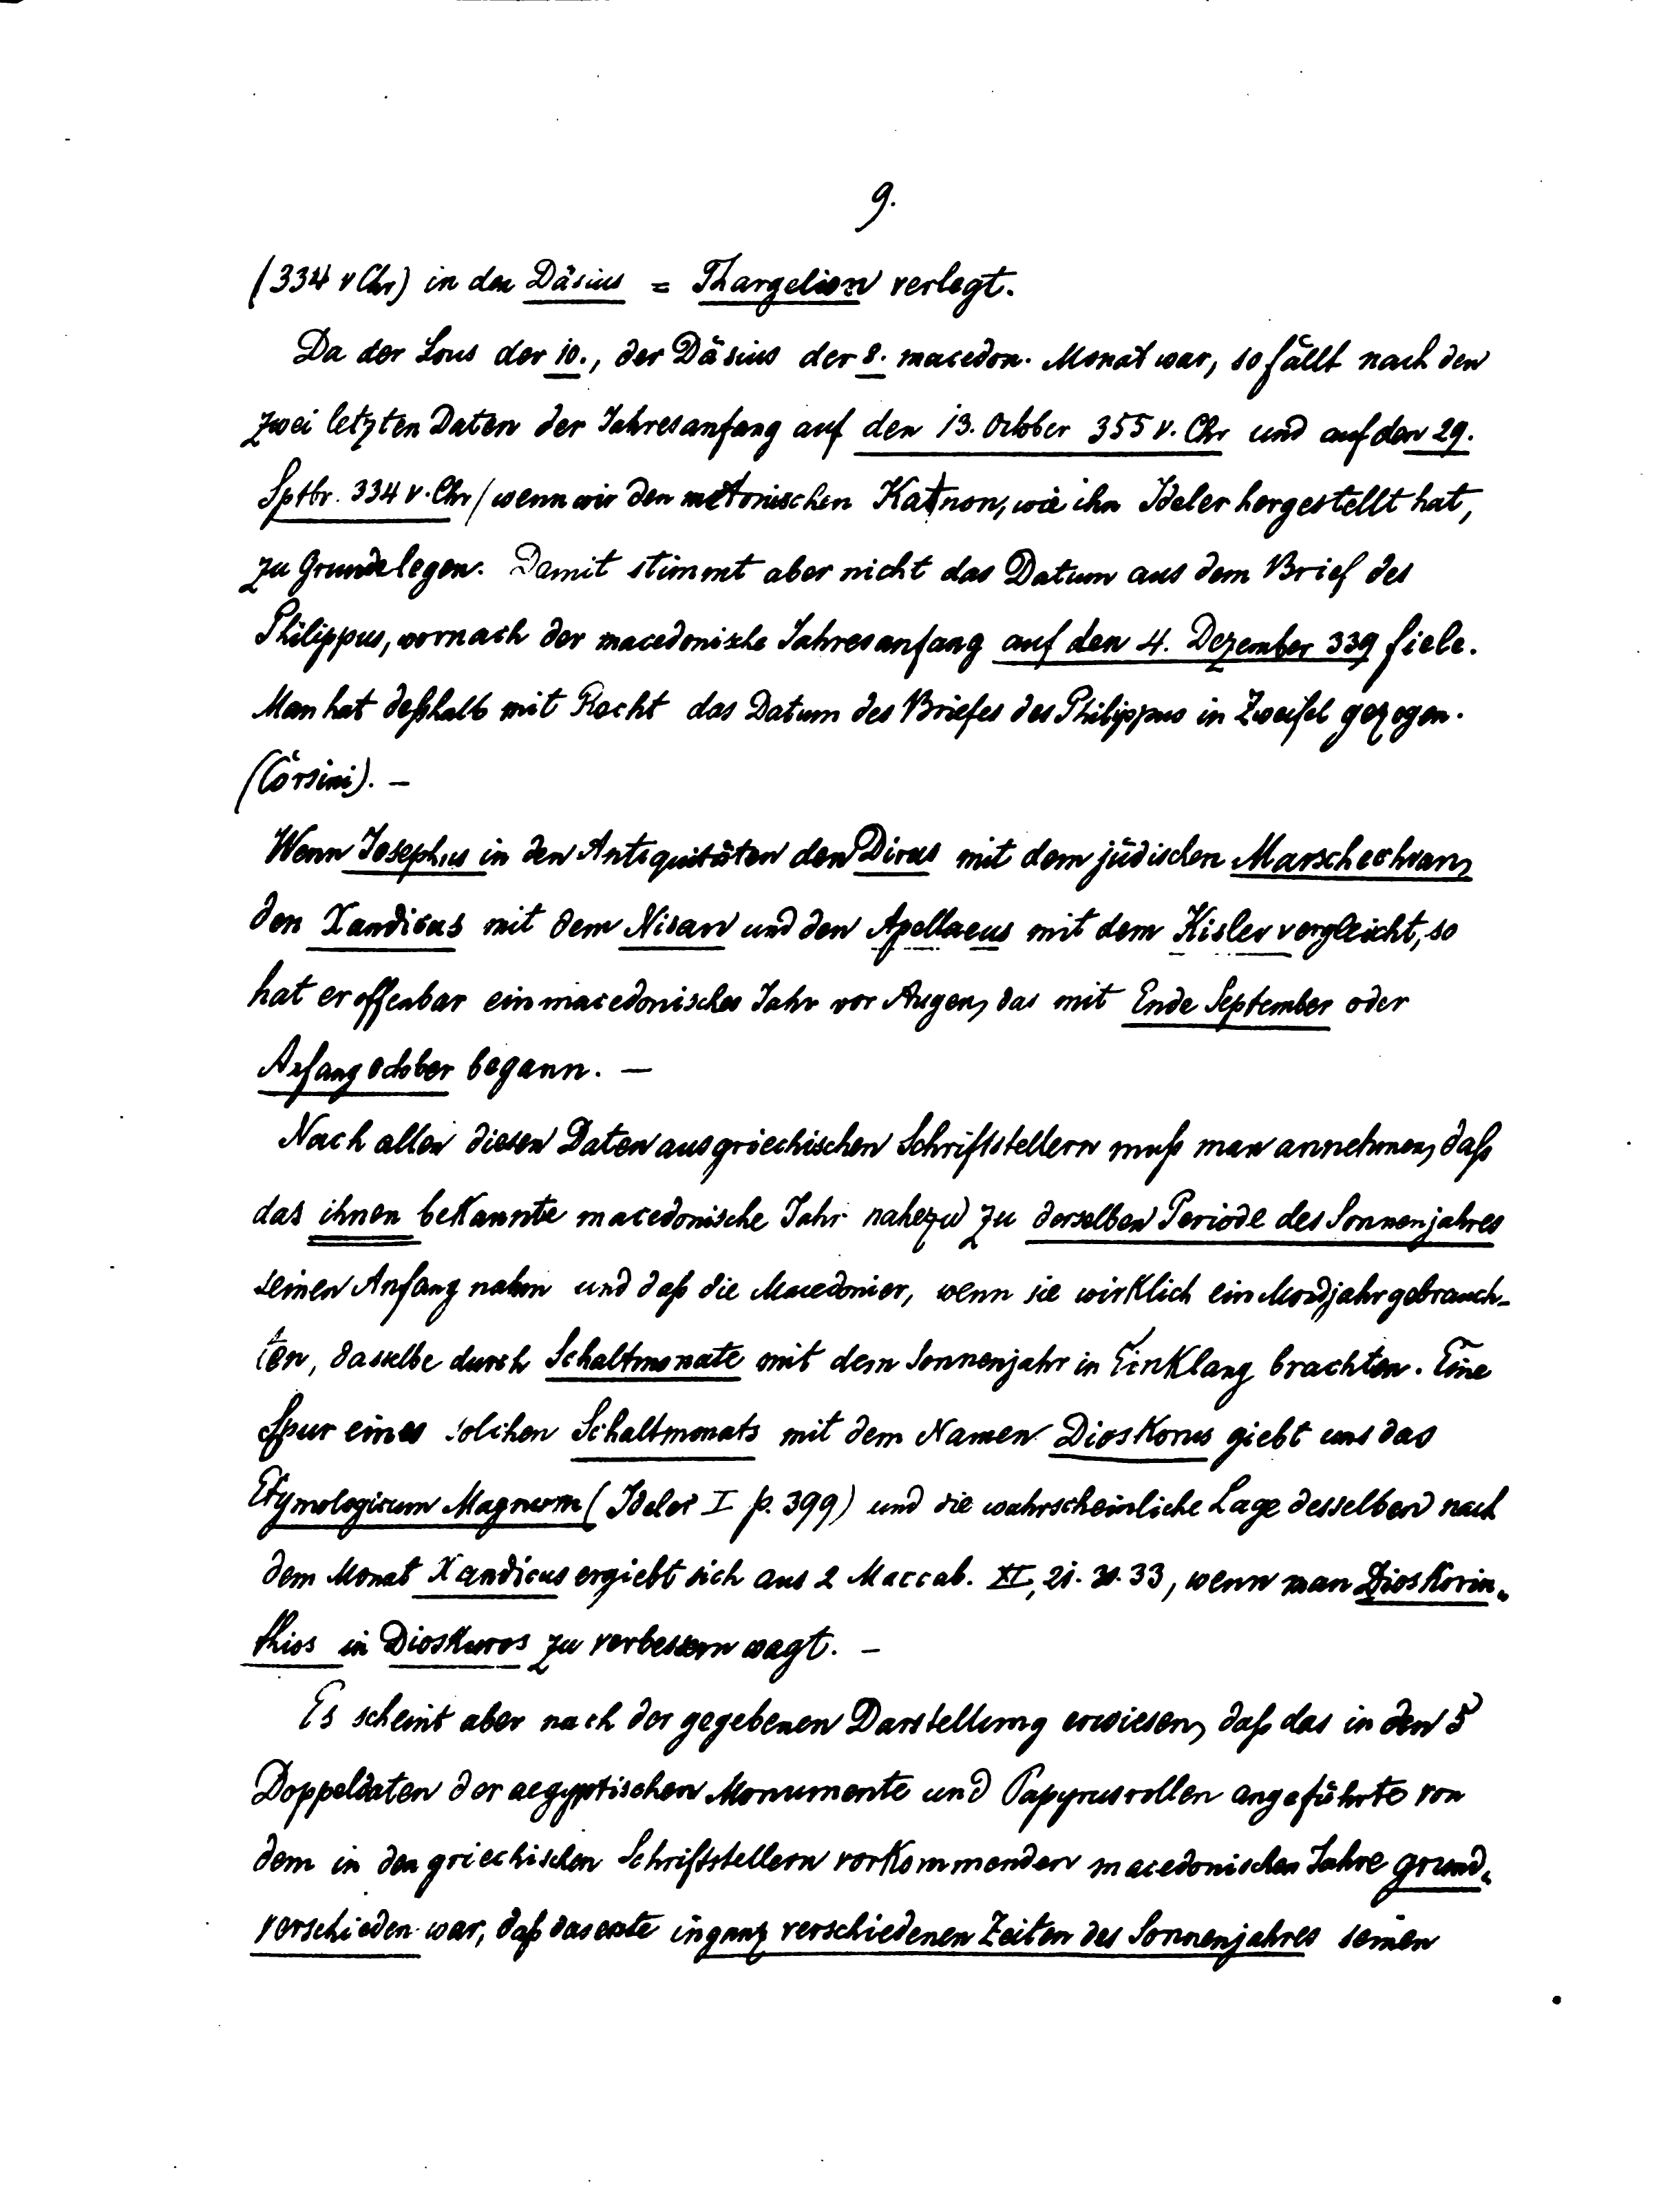 9.
(334 v Chr) in den Däsius = Thargelion verlegt.
Da der Lous der 10., der Däsius der 8. macedon. Monat war, so fällt nach den
zwei letzten Daten der Jahresanfang auf den 13. October 355 v. Chr und auf den 29.
Sptbr. 334 v. Chr (wenn wir den metonischen Kanon, wie ihn Ideler hergestellt hat,
zu Grunde legen. Damit stimmt aber nicht das Datum aus dem Brief des
Philippus, wornach der macedonische Jahresanfang auf den 4. Dezember 339 fiele.
Man hat deßhalb mit Recht das Datum des Briefes des Philippus in Zweifel gezogen.
(Corsini). –
Wenn Josephus in den Antiquitäten den Dius mit dem jüdischen Marschechvan,
den Xandicus mit dem Nisan und den Apellaeus mit dem Kislev vergleicht, so
hat er offenbar ein macedonisches Jahr vor Augen, das mit Ende September oder
Anfang October begann. –
Nach allen diesen Daten aus griechischen Schriftstellern muß man annehmen, daß
das ihnen bekannte macedonische Jahr nahezu zu derselben Periode des Sonnenjahres
seinen Anfang nahm und daß die Macedonier, wenn sie wirklich ein Mondjahr gebrauch-
ten, dasselbe durch Schaltmonate mit dem Sonnenjahr in Einklang brachten. Eine
Spur eines solchen Schaltmonats mit dem Namen Dioskorus giebt uns das
Etymologicum Magnum (Ideler I p. 399) und die wahrscheinliche Lage desselben nach
dem Monat Xandicus ergiebt sich aus 2 Maccab. XI, 21. 30. 33, wenn man Dioskorin-
thios in Dioskuros zu verbessern wagt. –
Es scheint aber nach der gegebenen Darstellung erwiesen, daß das in den 5
Doppeldaten der aegyptischen Monumente und Papyrusrollen angeführte von
dem in den griechischen Schriftstellern vorkommenden macedonischen Jahre grund-
verschieden war, daß das erste in ganz verschiedenen Zeiten des Sonnenjahres seinen